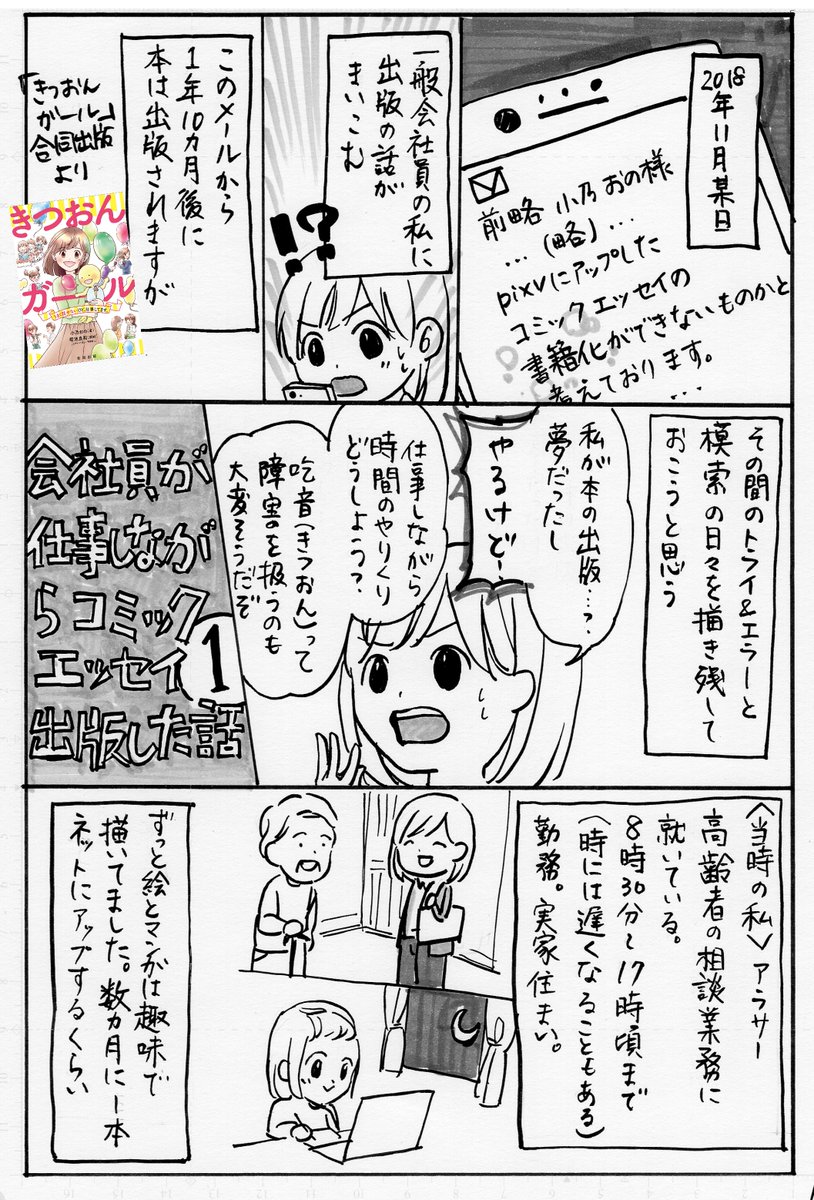 2018
年11月某日
前略 小乃おの様
…(略)…
pixvにアップした
コミックエッセイの
書籍化ができないものかと
考えております。
…
一般会社員の私に
出版の話が
まいこむ
!?
このメールから
1年10カ月後に
本は出版されますが
「きつおん
ガール」
合同出版
より
きつおん
ガール
その間のトライ&エラーと
模索の日々を描き残して
おこうと思う
私が本の出版…?
夢だったし
やるけど…
仕事しながら
時間のやりくり
どうしよう?
吃音(きつおん)って
障害を扱うのも
大変そうだぞ
会社員が
仕事しなが
らコミック
エッセイ
出版した話
1
〈当時の私〉アラサー
高齢者の相談業務に
就いている。
8時30分〜17時頃まで
(時には遅くなることもある)
勤務。実家住まい。
ずっと絵とマンガは趣味で
描いてました。数カ月に一本
ネットにアップするくらい